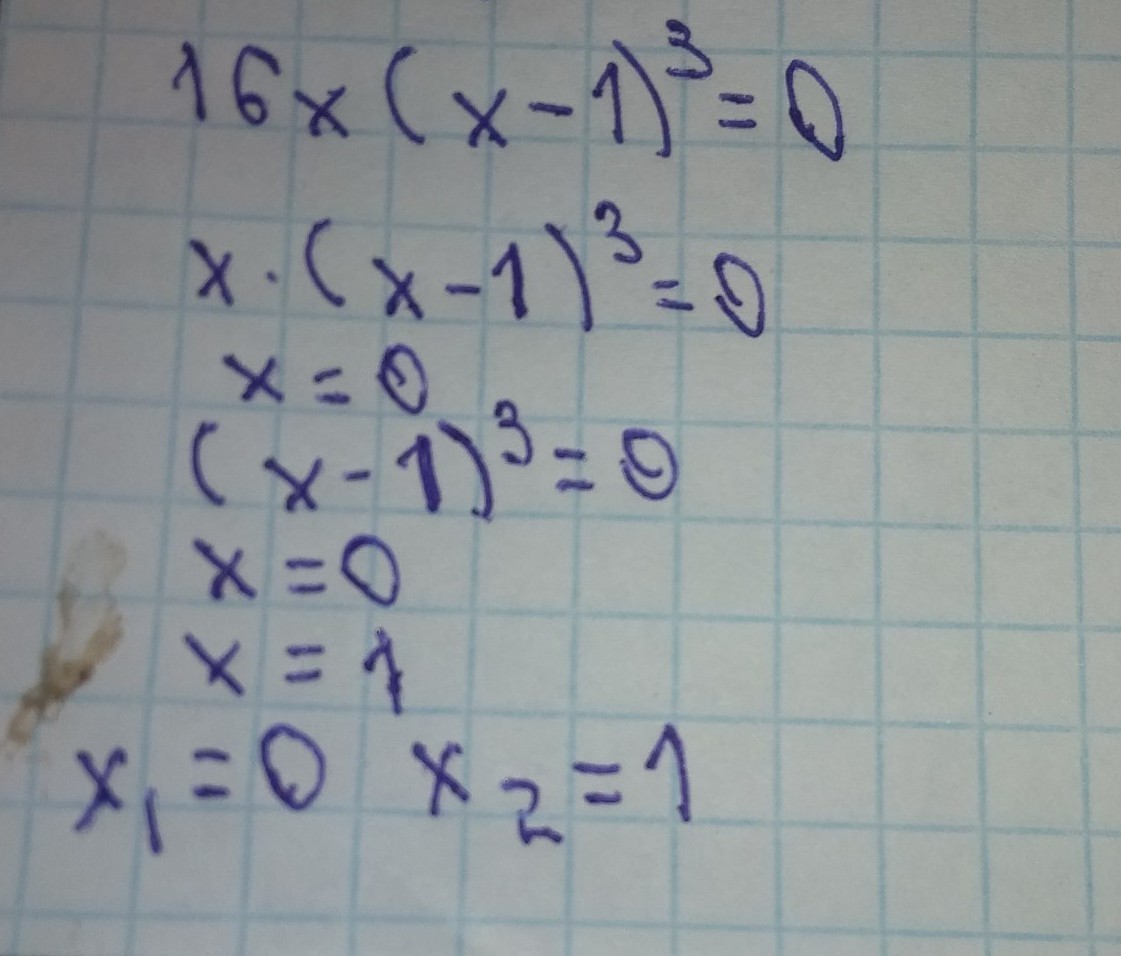 16x(x-1)³=0
x·(x-1)³=0
x=0
(x-1)³=0
x=0
x=1
x₁=0 x₂=1